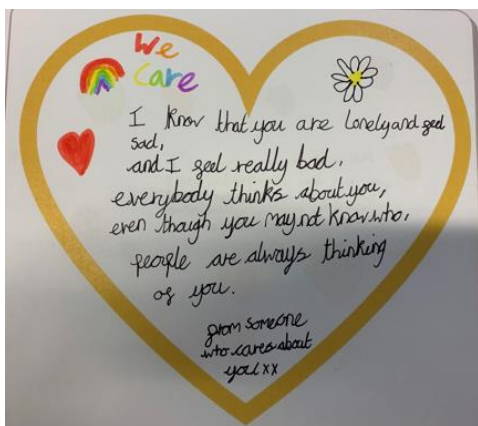 We
Care
I know that you are lonely and feel
sad,
and I feel really bad,
everybody thinks about you,
even though you may not know who,
people are always thinking
of you.
from someone
who cares about
you xx